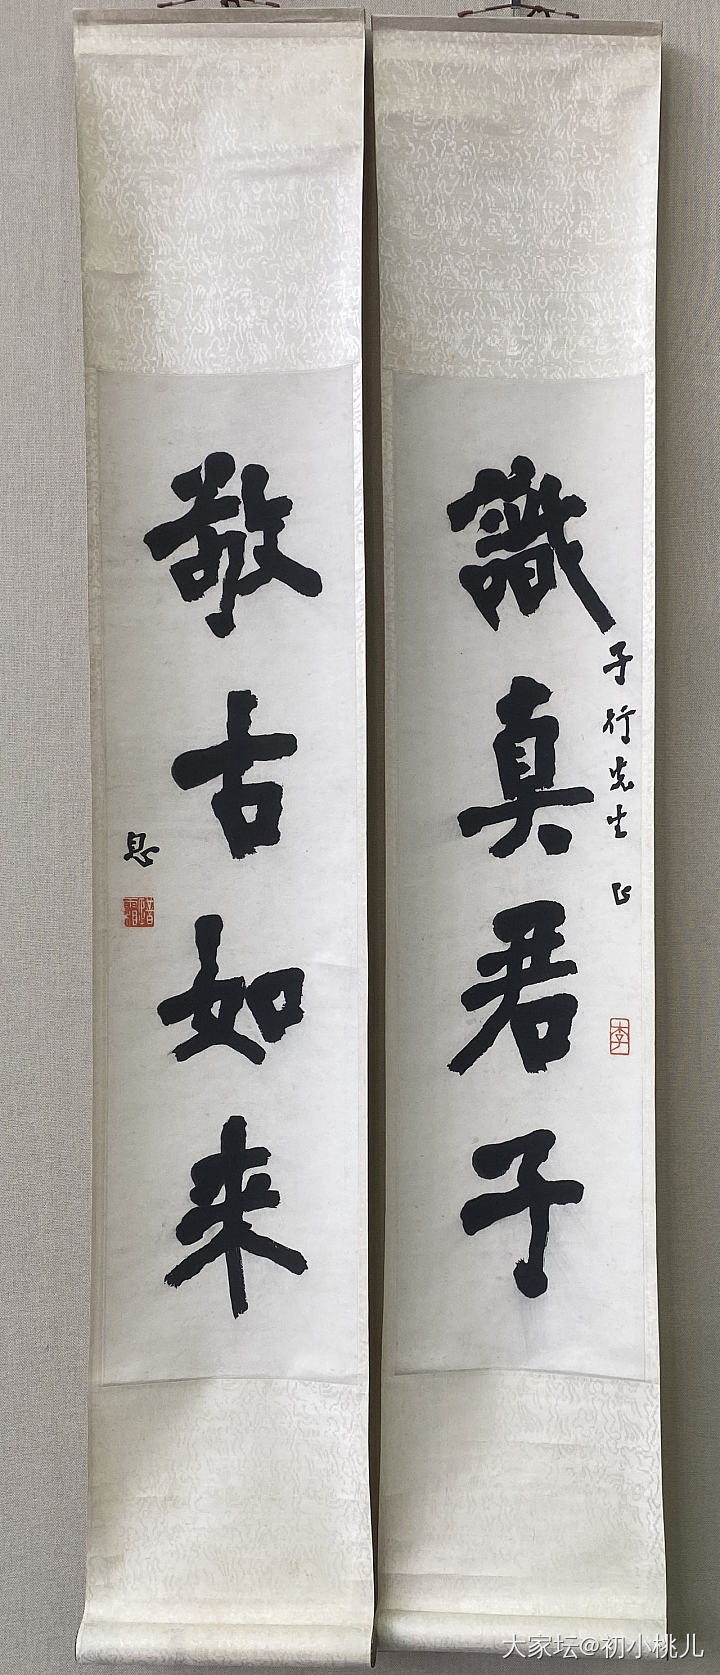 識真君子
子行先生正
李
敬古如来
息
大家坛@初小桃儿